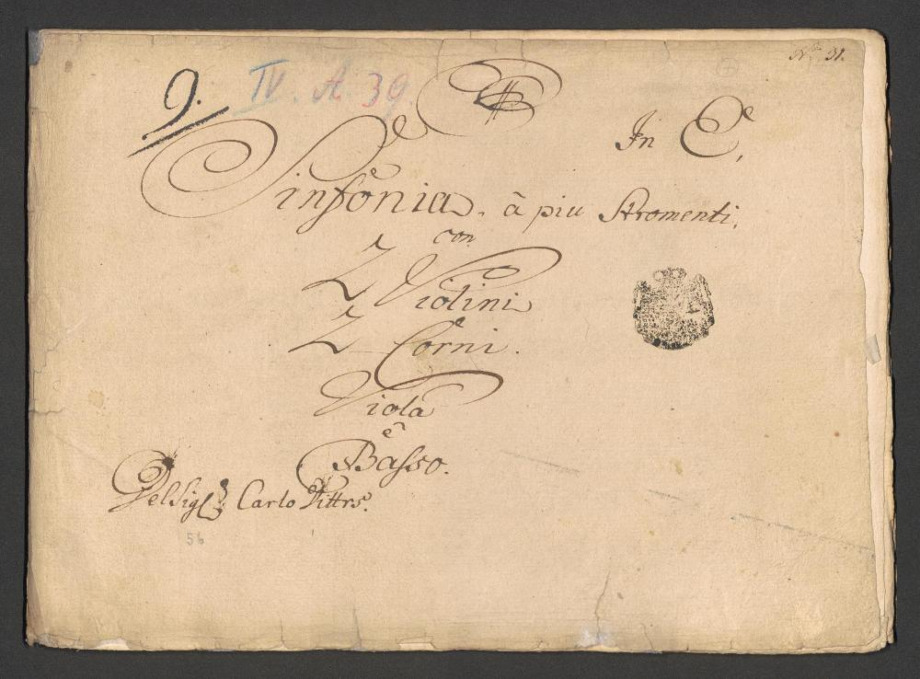 No 31.
9. IV. A. 39
In C,
Sinfonia. à piu Stromenti.
con
2 Violini
2 Corni.
Viola
e
Basso.
Del Sig: Carlo Dittrs.
56